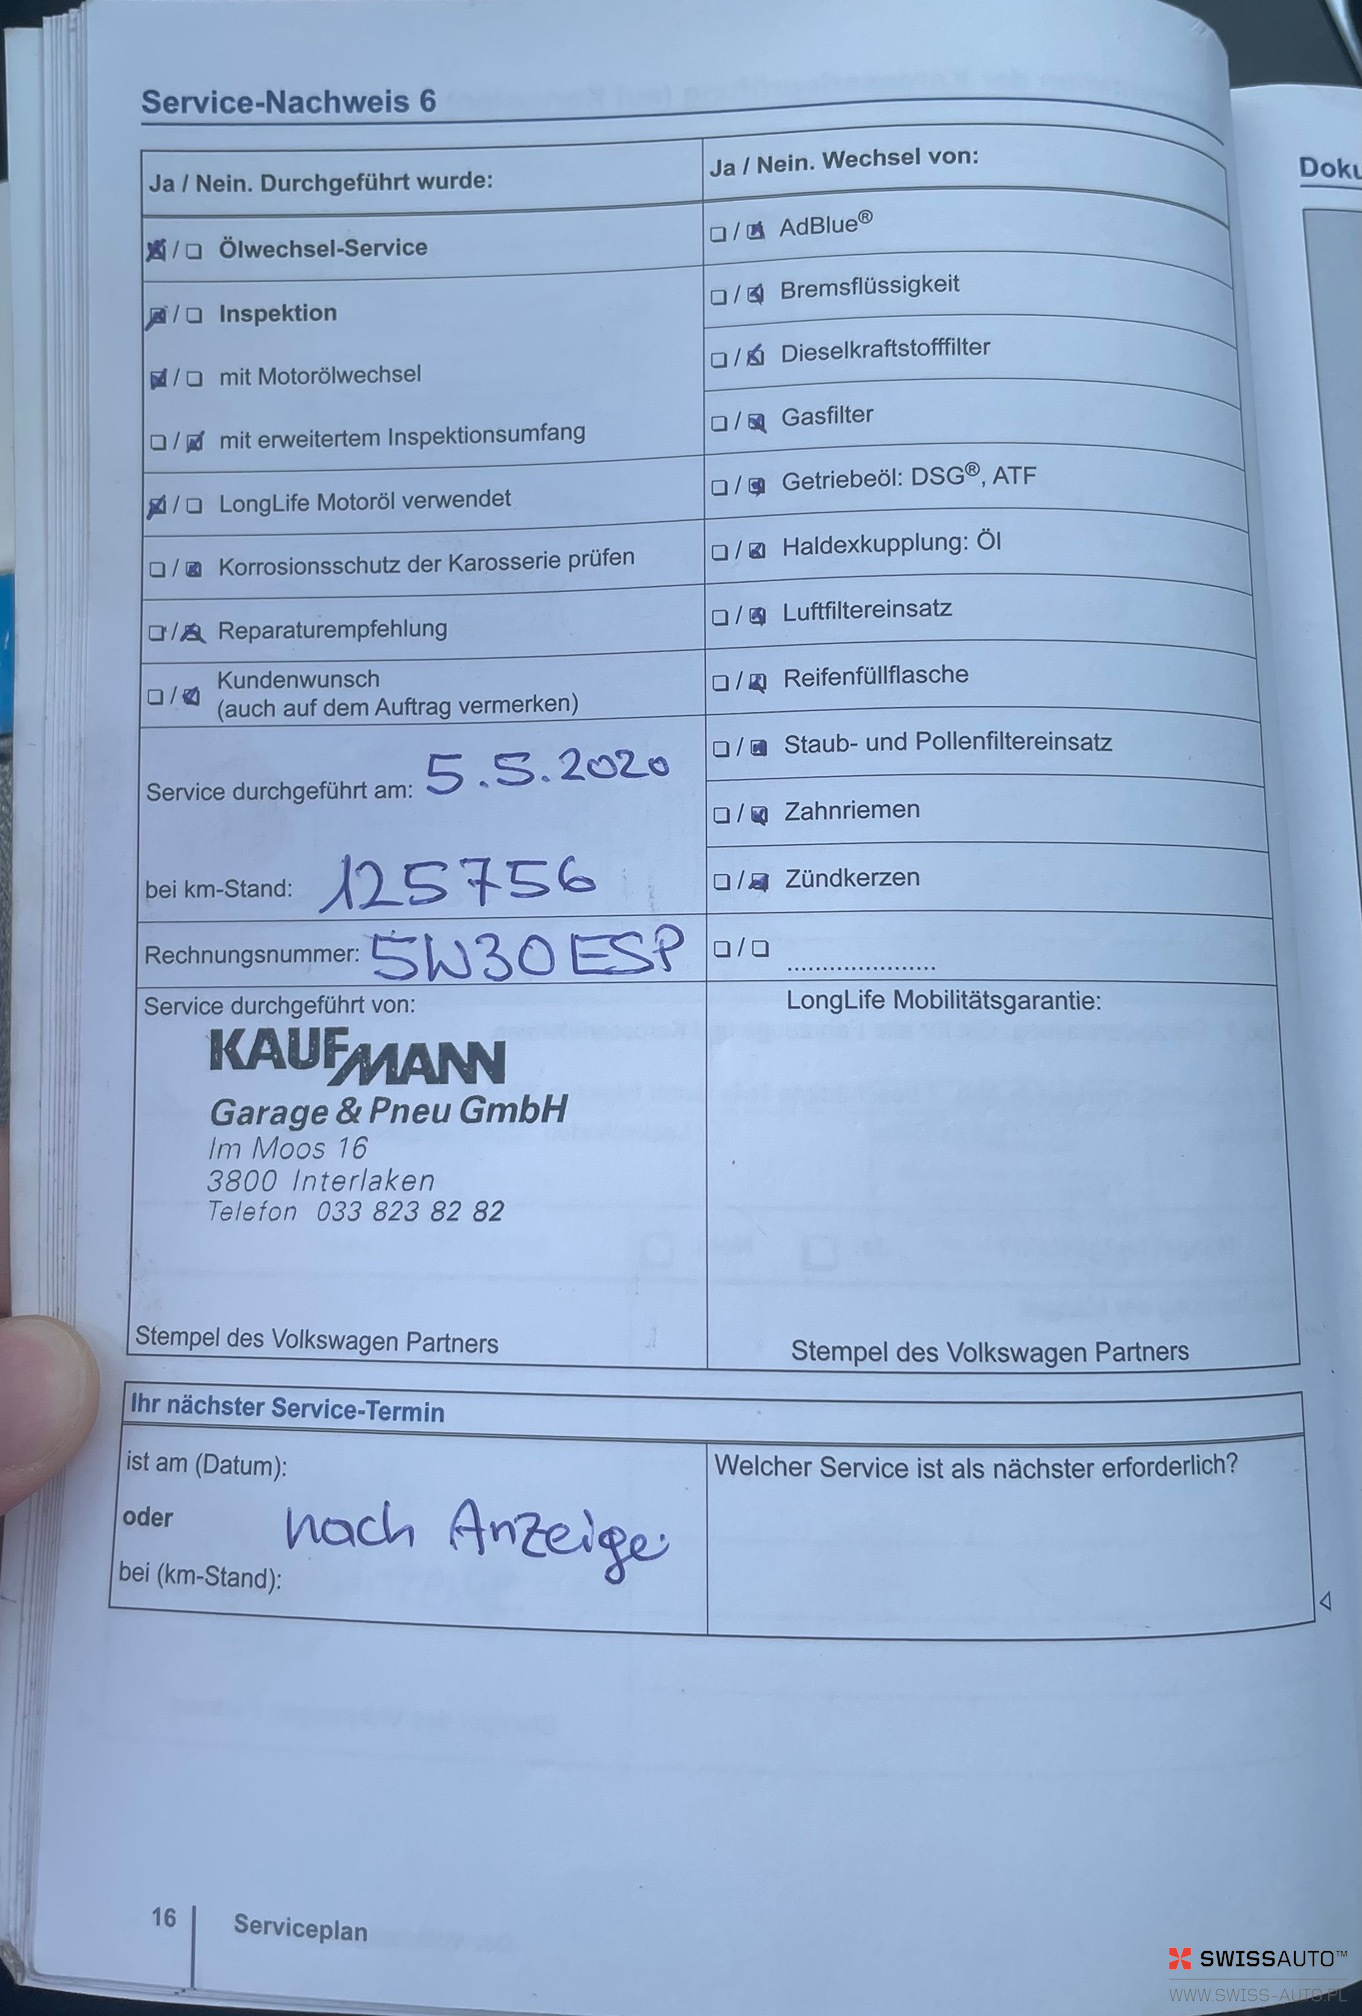 Service-Nachweis 6
Ja / Nein. Durchgeführt wurde:
Ölwechsel-Service
Inspektion
mit Motorölwechsel
mit erweitertem Inspektionsumfang
LongLife Motoröl verwendet
Korrosionsschutz der Karosserie prüfen
Reparaturempfehlung
Kundenwunsch
(auch auf dem Auftrag vermerken)
Service durchgeführt am: 5.5.2020
bei km-Stand: 125756
Rechnungsnummer: 5W30 ESP
Service durchgeführt von:
KAUFMANN
Garage & Pneu GmbH
Im Moos 16
3800 Interlaken
Telefon 033 823 82 82
Stempel des Volkswagen Partners
Ja / Nein. Wechsel von:
AdBlue®
Bremsflüssigkeit
Dieselkraftstofffilter
Gasfilter
Getriebeöl: DSG®, ATF
Haldexkupplung: Öl
Luftfiltereinsatz
Reifenfüllflasche
Staub- und Pollenfiltereinsatz
Zahnriemen
Zündkerzen
/ ......................
LongLife Mobilitätsgarantie:
Stempel des Volkswagen Partners
Ihr nächster Service-Termin
ist am (Datum):
oder
nach Anzeige
bei (km-Stand):
Welcher Service ist als nächster erforderlich?
16 Serviceplan
Doku
SWISSAUTO™
WWW.SWISS-AUTO.PL